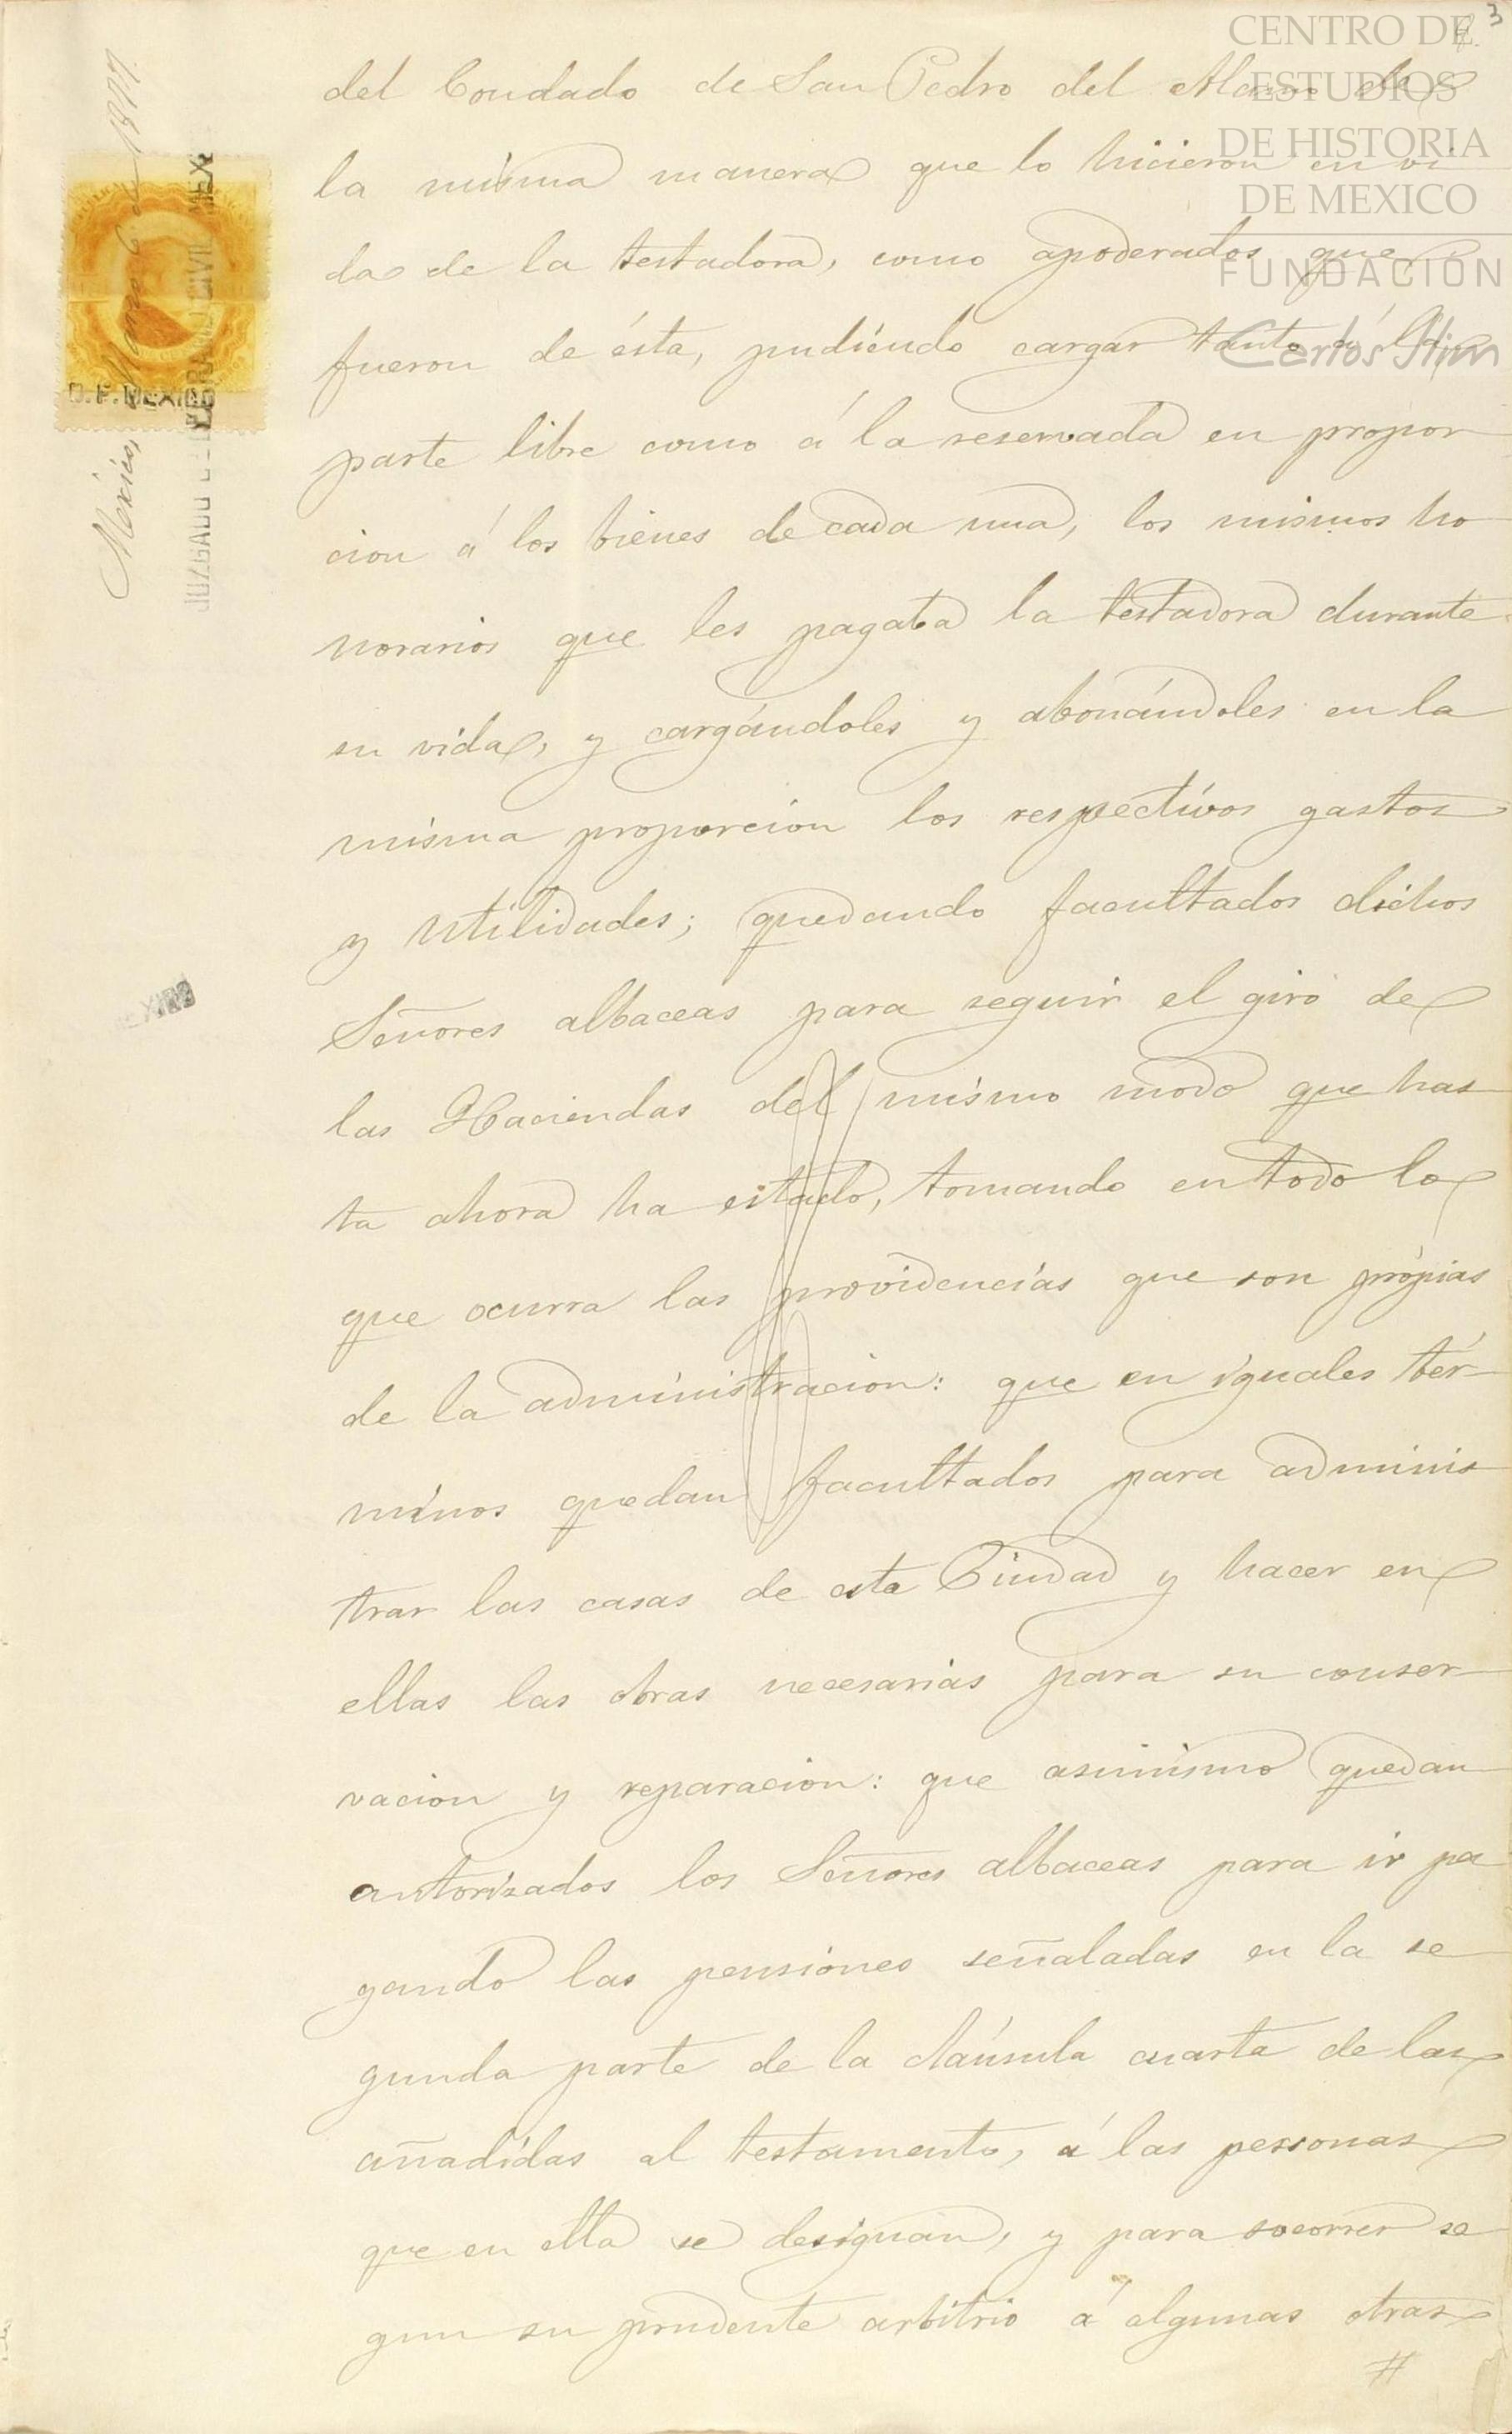 3
CENTRO DE
ESTUDIOS
DE HISTORIA
DE MEXICO
FUNDACIÓN
Carlos Slim
D.F. MEXICO
JUZGADO CIVIL MEX
México, 1877.
del Condado de San Pedro del Alamo de
la misma manera que lo hicieron en vi
da de la testadora, como apoderados que
fueron de ésta, pudiendo cargar tanto á la
parte libre como á la reservada en propor
cion á los bienes de cada una, los mismos ho
norarios que les pagaba la testadora durante
su vida, y cargándoles y abonándoles en la
misma proporcion los respectivos gastos
y utilidades; quedando facultados dichos
Señores albaceas para seguir el giro de
las Haciendas del mismo modo que has
ta ahora ha estado, tomando en todo lo
que ocurra las providencias que son própias
de la administracion: que en iguales tér
minos quedan facultados para adminis
trar las casas de esta Ciudad y hacer en
ellas las obras necesarias para su conser
vacion y reparacion: que asimismo quedan
autorizados los Señores albaceas para ir pa
gando las pensiones señaladas en la se
gunda parte de la cláusula cuarta de las
añadidas al testamento, á las personas
que en ella se designan, y para socorrer se
gun su prudente arbitrio á algunas otras
#